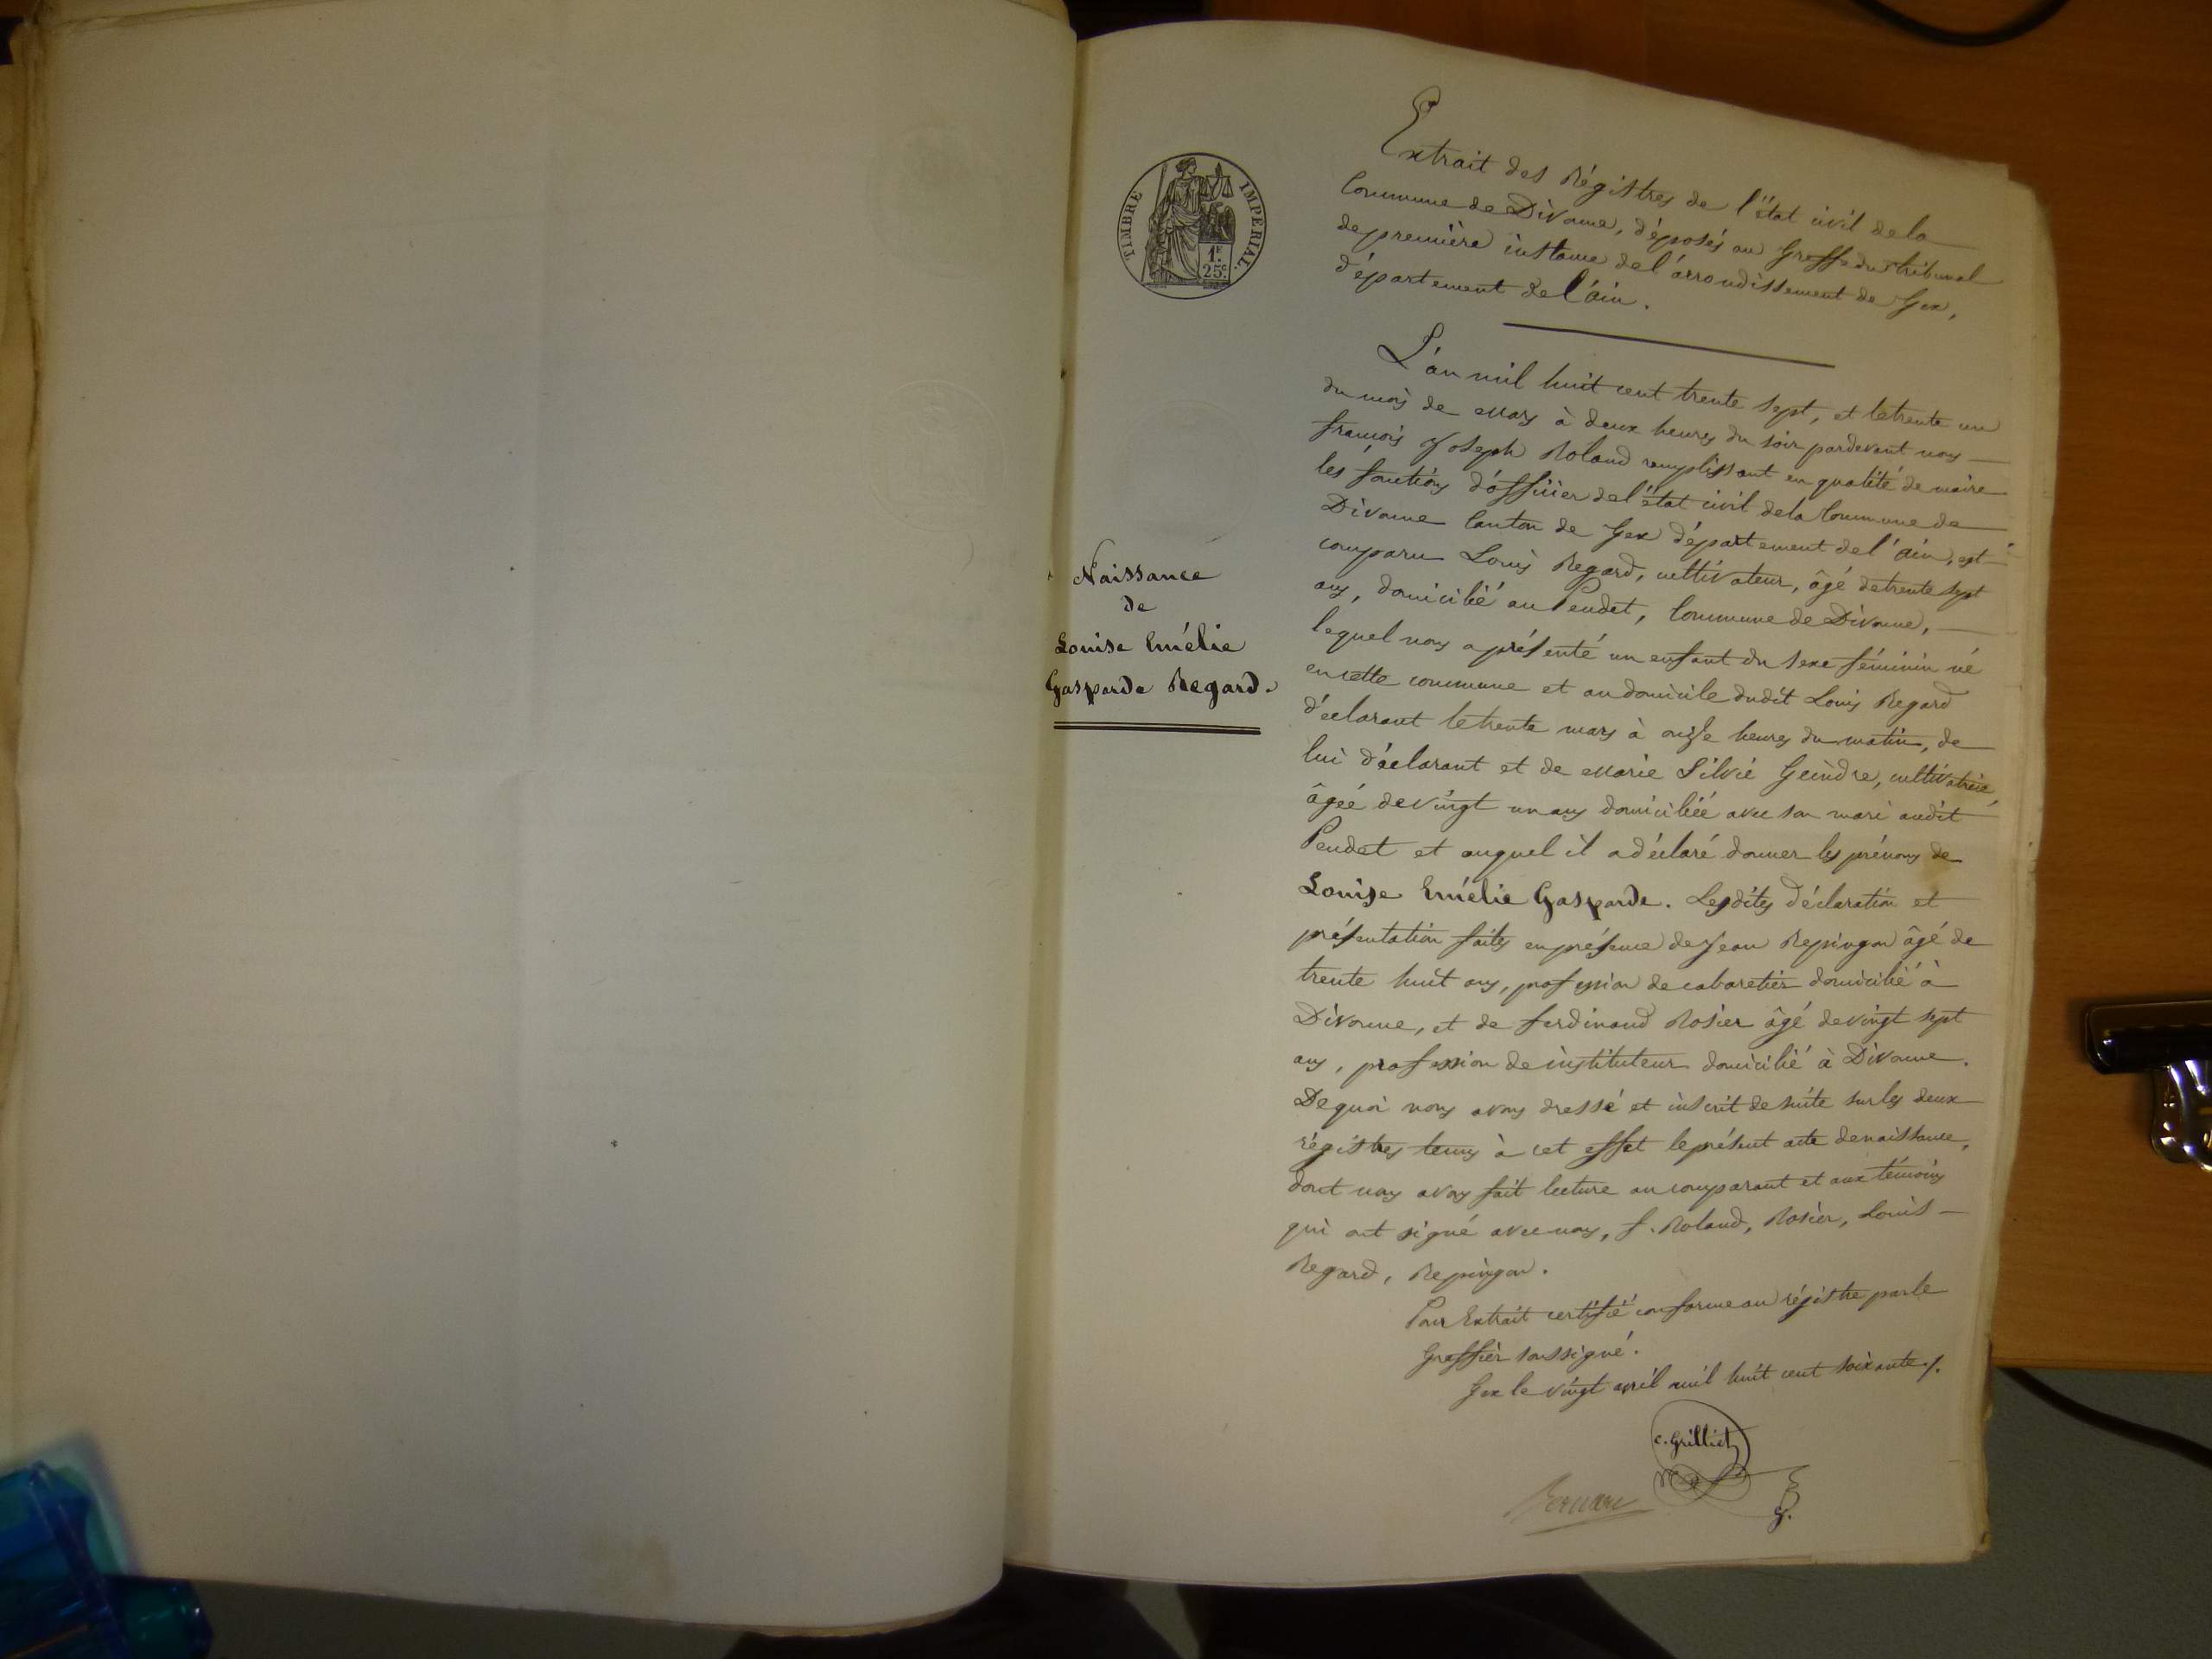 TIMBRE IMPERIAL.
1F.
25c
Naissance
de
Louise Emélie
Gasparde Regard.
Extrait des Régistres de l'état civil de la
Commune de Divonne, déposés au Greffe du tribunal
de première instance de l'arrondissement de Gex,
département de l'ain.
L'an mil huit cent trente sept, et le trente un
du mois de Mars à deux heures du soir pardevant nous
françois Joseph Roland remplissant en qualité de maire
les fonctions d'officier de l'état civil de la Commune de
Divonne Canton de Gex département de l'ain, est
comparu Louis Regard, cultivateur, âgé de trente sept
ans, domicilié au Pendet, Commune de Divonne,
lequel nous a présenté un enfant du sexe féminin né
en cette commune et au domicile dudit Louis Regard
déclarant le trente mars à onze heures du matin, de
lui déclarant et de Marie Silvie Geindre, cultivatrice,
âgée de vingt un ans domiciliée avec son mari audit
Pendet et auquel il a déclaré donner les prénoms de
Louise Emélie Gasparde. Lesdites déclaration et
présentation faites en présence de Jean Repingon âgé de
trente huit ans, profession de cabaretier domicilié à
Divonne, et de ferdinand Rosier âgé de vingt sept
ans, profession de instituteur domicilié à Divonne.
De quoi nous avons dressé et inscrit de suite sur les deux
régistres tenus à cet effet le présent acte de naissance,
dont nous avons fait lecture au comparant et aux témoins
qui ont signé avec nous, f. Roland, Rosier, Louis
Regard, Repingon.
Pour Extrait certifié conforme au régistre par le
Greffier soussigné.
Gex le vingt avril mil huit cent soixante./.
C. Grilliet